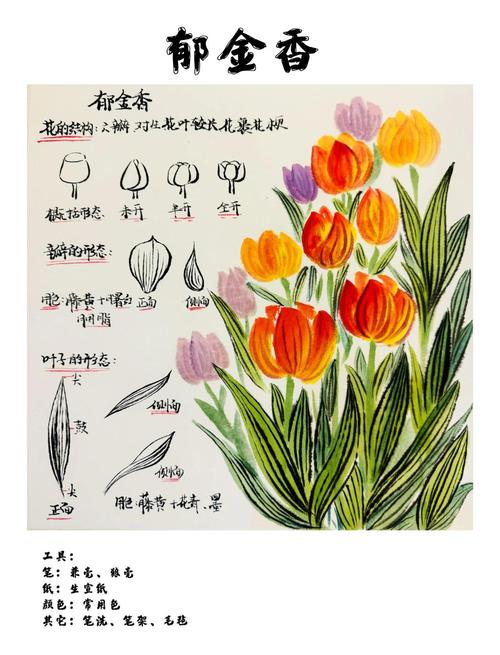 郁金香
郁金香
花的结构:六瓣 对生花叶较长 花蕚花梗
概括形态 未开 半开 全开
花瓣的形态:
正面 侧面
用色:藤黄十曙红
胭脂
叶子的形态:
尖
侧面
鼓
侧面
尖
正面
用色:藤黄十花青、墨
工具:
笔: 兼毫、狼毫
纸: 生宣纸
颜色: 常用色
其它: 笔洗、笔架、毛毡